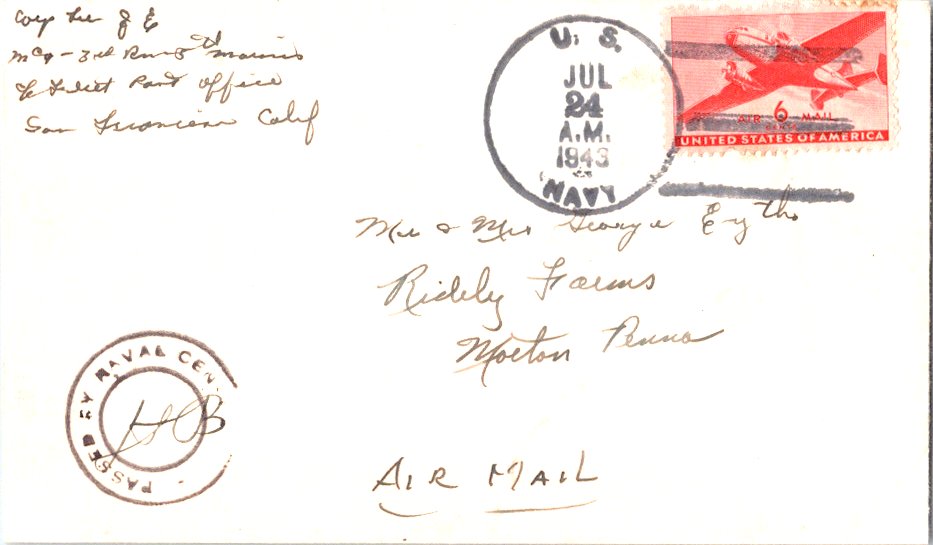 Corp Lee J E
M Co - 3rd Bn - 8th Marines
℅ Fleet Post Office
San Francisco Calif
U. S.
JUL
24
A.M.
1943
NAVY
AIR 6 MAIL
CENTS
UNITED STATES OF AMERICA
Mr & Mrs George
Ridely Farms
Morton Penna
PASSED BY NAVAL CEN
AIR MAIL